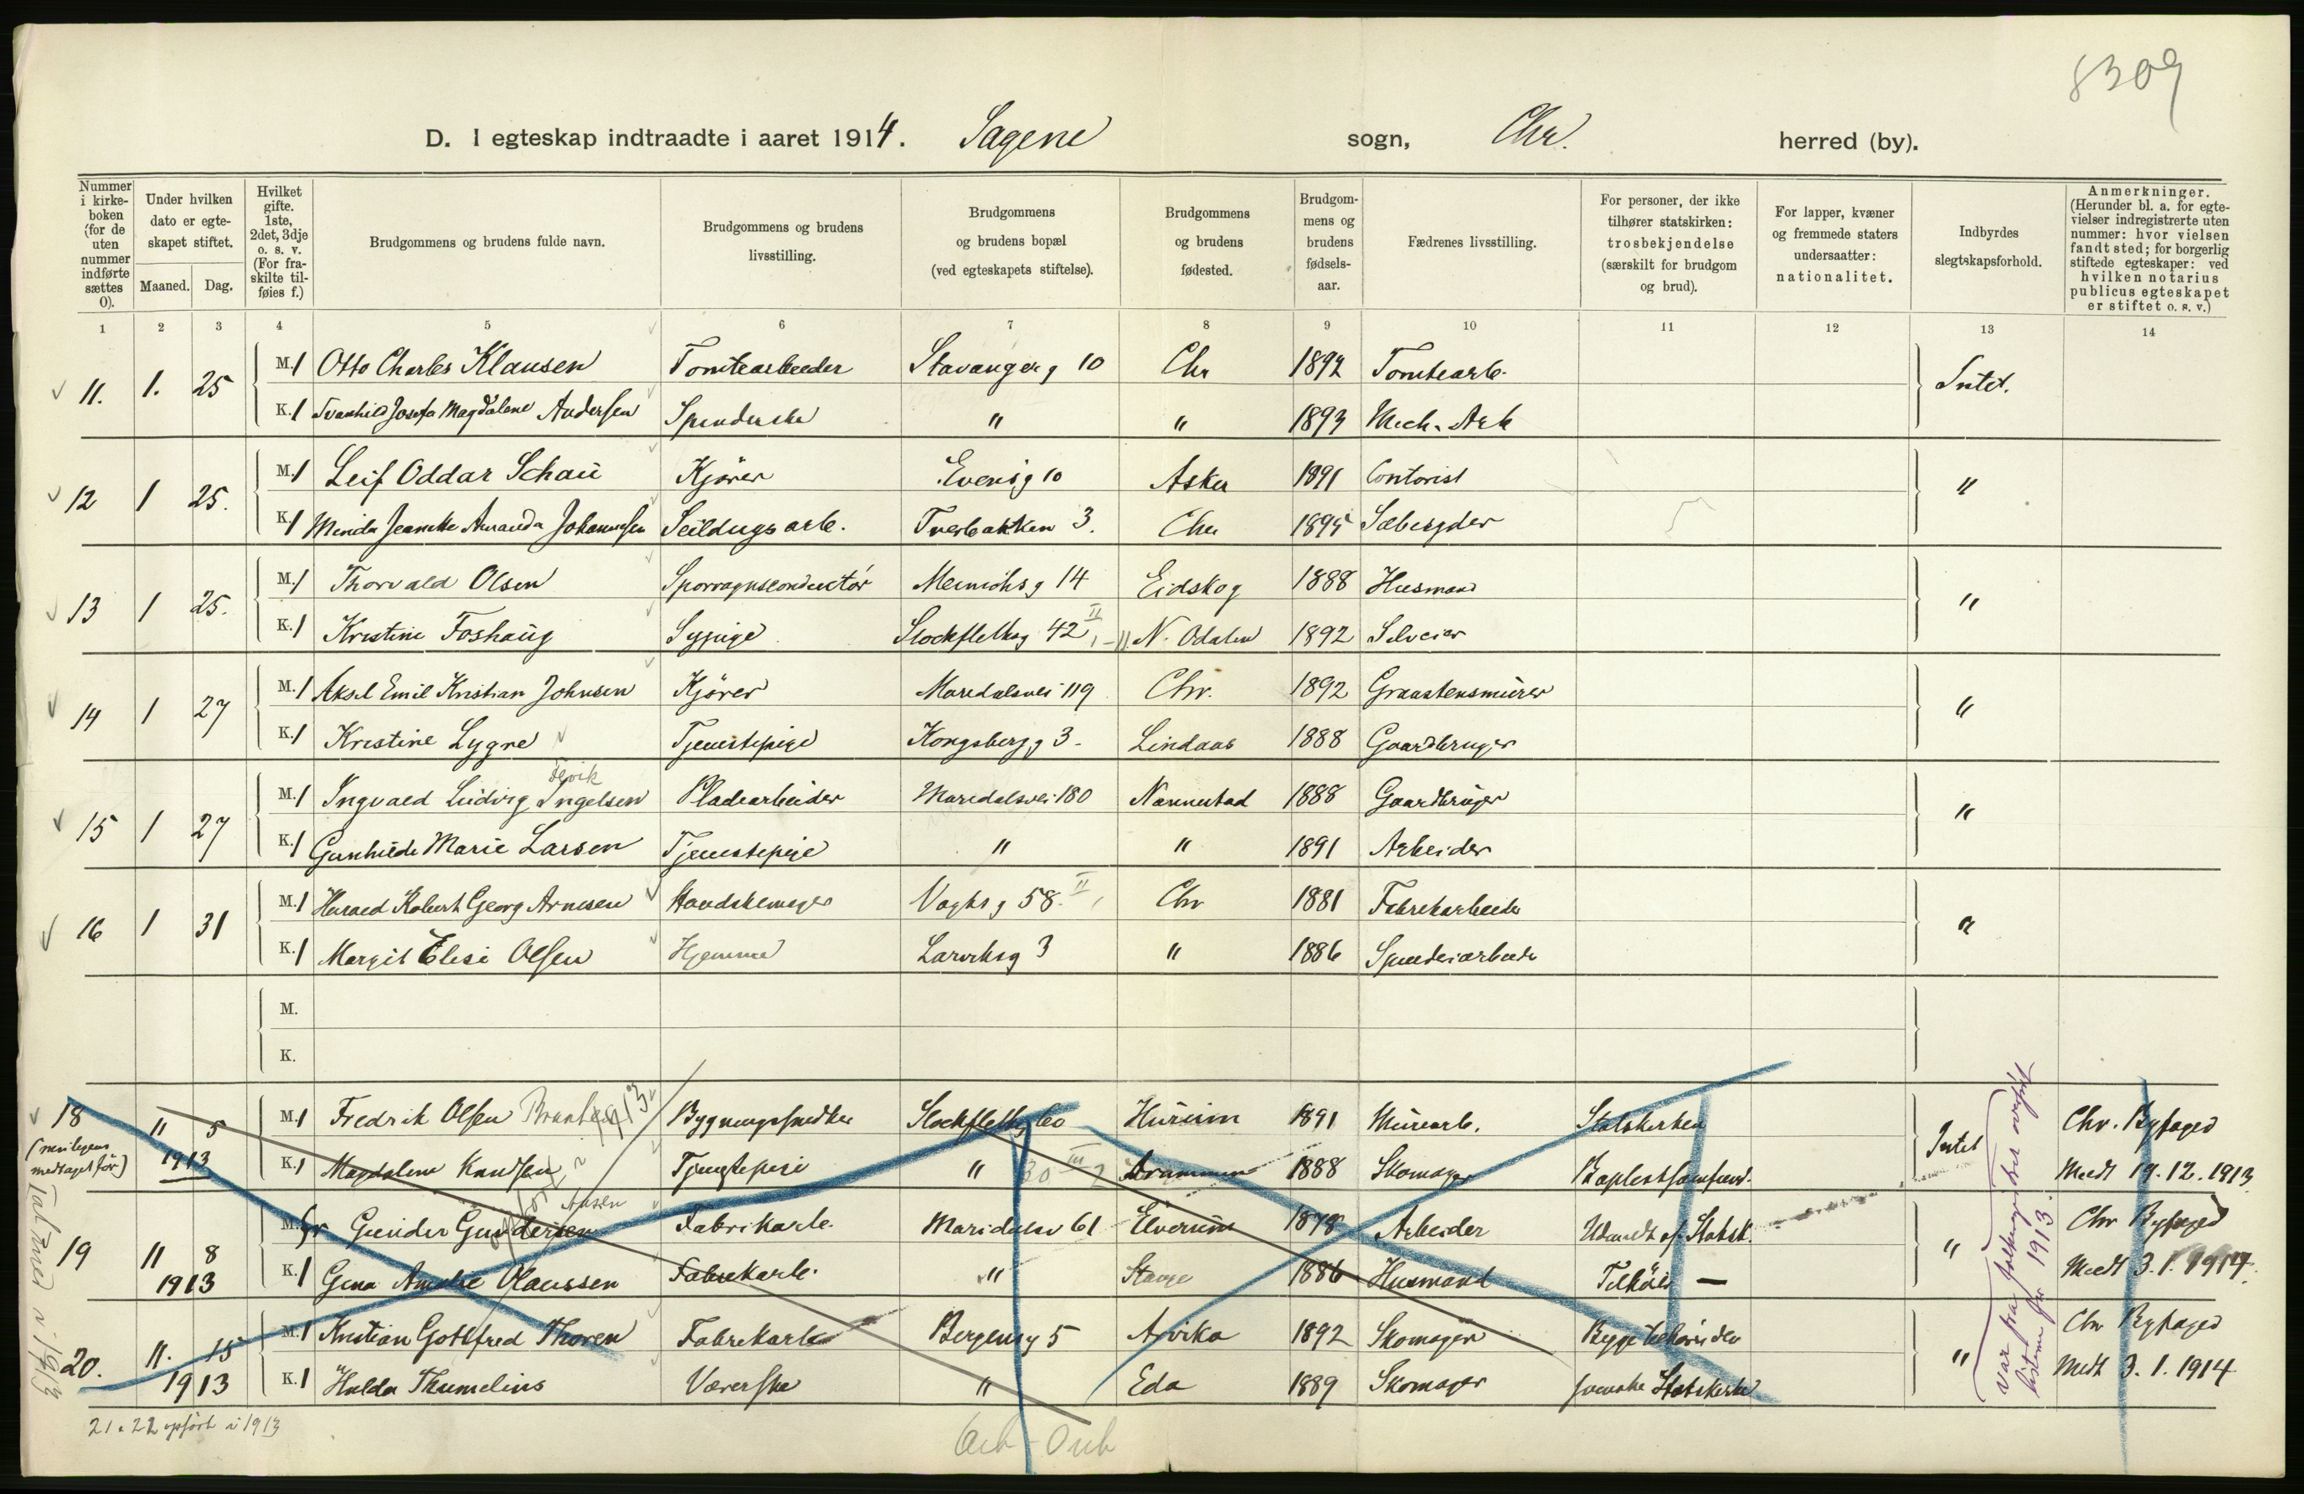 8309
D. I egteskap indtraadte i aaret 1914. Sagene sogn, Chr. herred (by).
Nummer i kirke-boken (for de uten nummer indførte sættes 0).
Under hvilken dato er egte-skapet stiftet.
Maaned. Dag.
Hvilket gifte. 1ste, 2det, 3dje o. s. v. (For fra-skilte til-føies f.)
Brudgommens og brudens fulde navn.
Brudgommens og brudens livsstilling.
Brudgommens og brudens bopæl (ved egteskapets stiftelse).
Brudgommens og brudens fødested.
Brudgom-mens og brudens fødsels-aar.
Fædrenes livsstilling.
For personer, der ikke tilhører statskirken: trosbekjendelse (særskilt for brudgom og brud).
For lapper, kvæner og fremmede staters undersaatter: nationalitet.
Indbyrdes slegtskapsforhold.
Anmerkninger. (Herunder bl. a. for egte-vielser indregistrerte uten nummer: hvor vielsen fandt sted; for borgerlig stiftede egteskaper: ved hvilken notarius publicus egteskapet er stiftet o. s. v.)
1 2 3 4 5 6 7 8 9 10 11 12 13 14
11. 1. 25 M. 1 Otto Charles Klausen Tomtearbeider Stavangerg 10 Chr 1892 Tomtearb. Intet.
K. 1 Svanhild Josefa Magdalene Andersen Spinderske " " 1893 Mech. Arb
12 1 25. M. 1 Leif Oddar Schau Kjører Evensg 10 Asker 1891 Contorist "
K. 1 Minda Jeanette Amanda Johannesen Seildugsarb. Tverbakken 3. Chr 1895 Sæbesyder
13 1 25. M. 1 Thorvald Olsen Sporvognsconductør 14 Eidskog 1888 Husmand "
K. 1 Kristine Foshaug Sypige Stockflethsg 42 II N. Odalen 1892 Selveier
14 1 27 M. 1 Aksel Emil Kristian Johnsen Kjører Maridalsvei 119 Chr. 1892 Graastensmurer "
K. 1 Kristine Lygre Tjenestepige Kongsbergg 3. Lindaas 1888 Gaardbruger
15 1 27 M. 1 Ingvald Ludvig Ingelsen Pladearbeider Maridalsvei 180 Nannestad 1888 Gaardbruger "
K. 1 Gunhilde Marie Larsen Tjenestepige " " 1891 Arbeider
16 1 31 M. 1 Harald Robert Georg Arnesen Handskemager Vogtsg 58. II Chr 1881 Fabrikarbeider "
K. 1 Margit Elise Olsen Hjemme Larviksg 3 " 1886 Spinderiarbeider
M.
K.
18 11 5 M. 1 Fredrik Olsen Bygningssnedker Stockflethsg 60 Hurum 1891 Murearb. Statskirken Intet Chr. Byfoged
(rettigens medtaget før) 1913 K. 1 Magdalene Knudsen Tjenstepige " 30 III 2 Drammen 1888 Skomager Baptistsamfund. Medt 19. 12. 1913
19 11 8 M. Gunder Gundersen Fabrikarb. Maridalsv 61 Elverum 1878 Arbeider Udmeldt af Statsk. " Chr Byfoged
1913 K. 1 Gina Amalie Olaussen Fabrikarb. " Stange 1886 Husmand Tilhører — Medt 3. 1. 1914.
20. 11. 15 M. 1 Kristian Gottfred Thoren Fabrikarb Bergensg 5 Arvika 1892 Skomager Begge tilhørinder " Chr Byfoged
1913 K. 1 Hulda Thumelius Væverske " Eda 1889 Skomager svenske Statskirke Medt 3. 1. 1914
var fra folkeregistret overført listen for 1913.
Tat med i 1913
21 o 22 opført i 1913